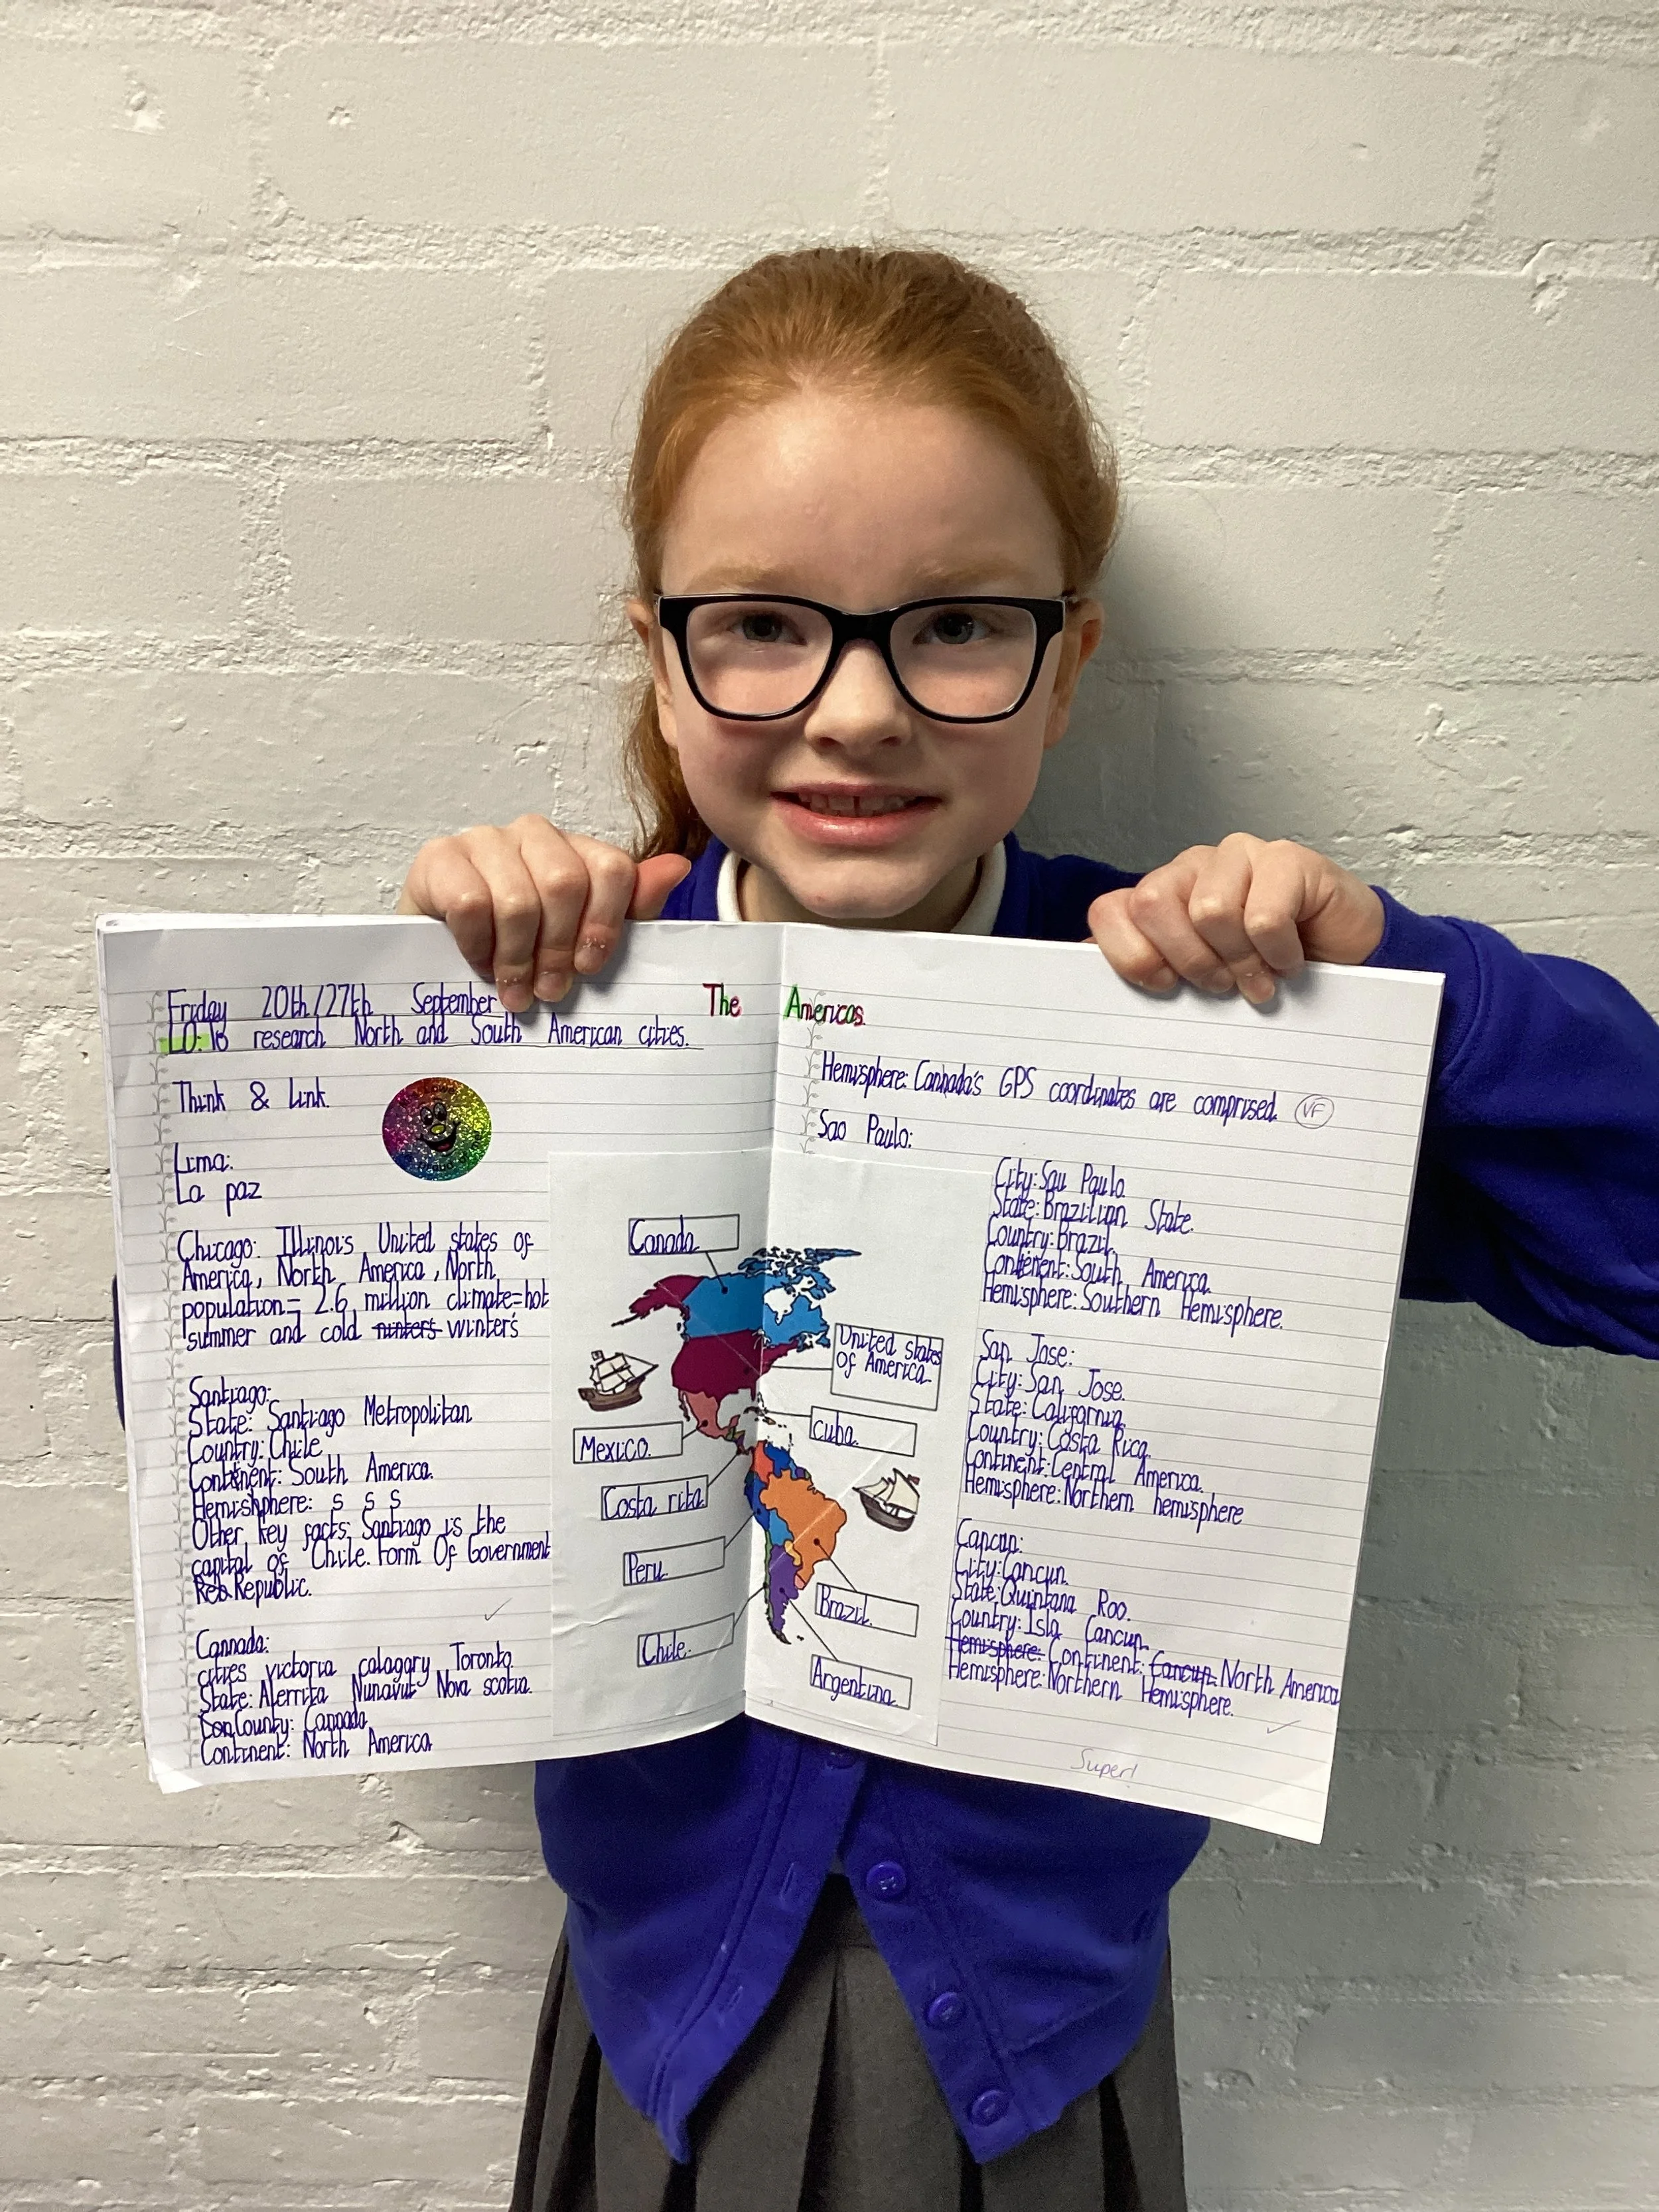 The Americas
Friday 20th/27th September
LO: To research North and South American cities.
Think & Link.
Lima:
La paz
Chicago: Illinois United states of
America, North America, North
population= 2.6 million climate=hot
summer and cold winters
Santiago:
State: Santiago Metropolitan
Country: Chile
Continent: South America.
Hemishphere: S S S
Other key facts; Santiago is the
capital of Chile. Form Of Government
Reb.Republic.
Cannada:
cities victoria calagary Toronto
State: Alerrita Nunavut Nova scotia.
Country: Cannada
Continent: North America
Canada
United states
of America
Mexico.
Cuba.
Costa rita
Peru
Brazil.
Chile.
Argentina.
Hemisphere: Cannada's GPS coordinates are comprised. VF
Sao Paulo:
City: Sau Paulo
State: Brazilian State.
Country: Brazil
Continent: South America.
Hemisphere: Southern Hemisphere.
San Jose:
City: San Jose.
State: California
Country: Costa Rica
Continent: Central America.
Hemisphere: Northern hemisphere
Cancun:
City: Cancun.
State: Quintana Roo.
Country: Isla Cancun
Hemisphere: Continent: Cancun North America
Hemisphere: Northern Hemisphere.
Super!